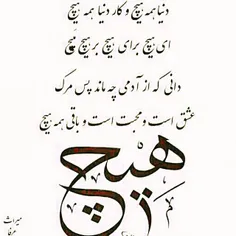 دنیا همه هیچ و کار دنیا همه هیچ
ای هیچ برای هیچ بر هیچ مپیچ
دانی که از آدمی چه ماند پس مرگ
عشق است و محبت است و باقی همه هیچ
هیچ
میراث
عرفا